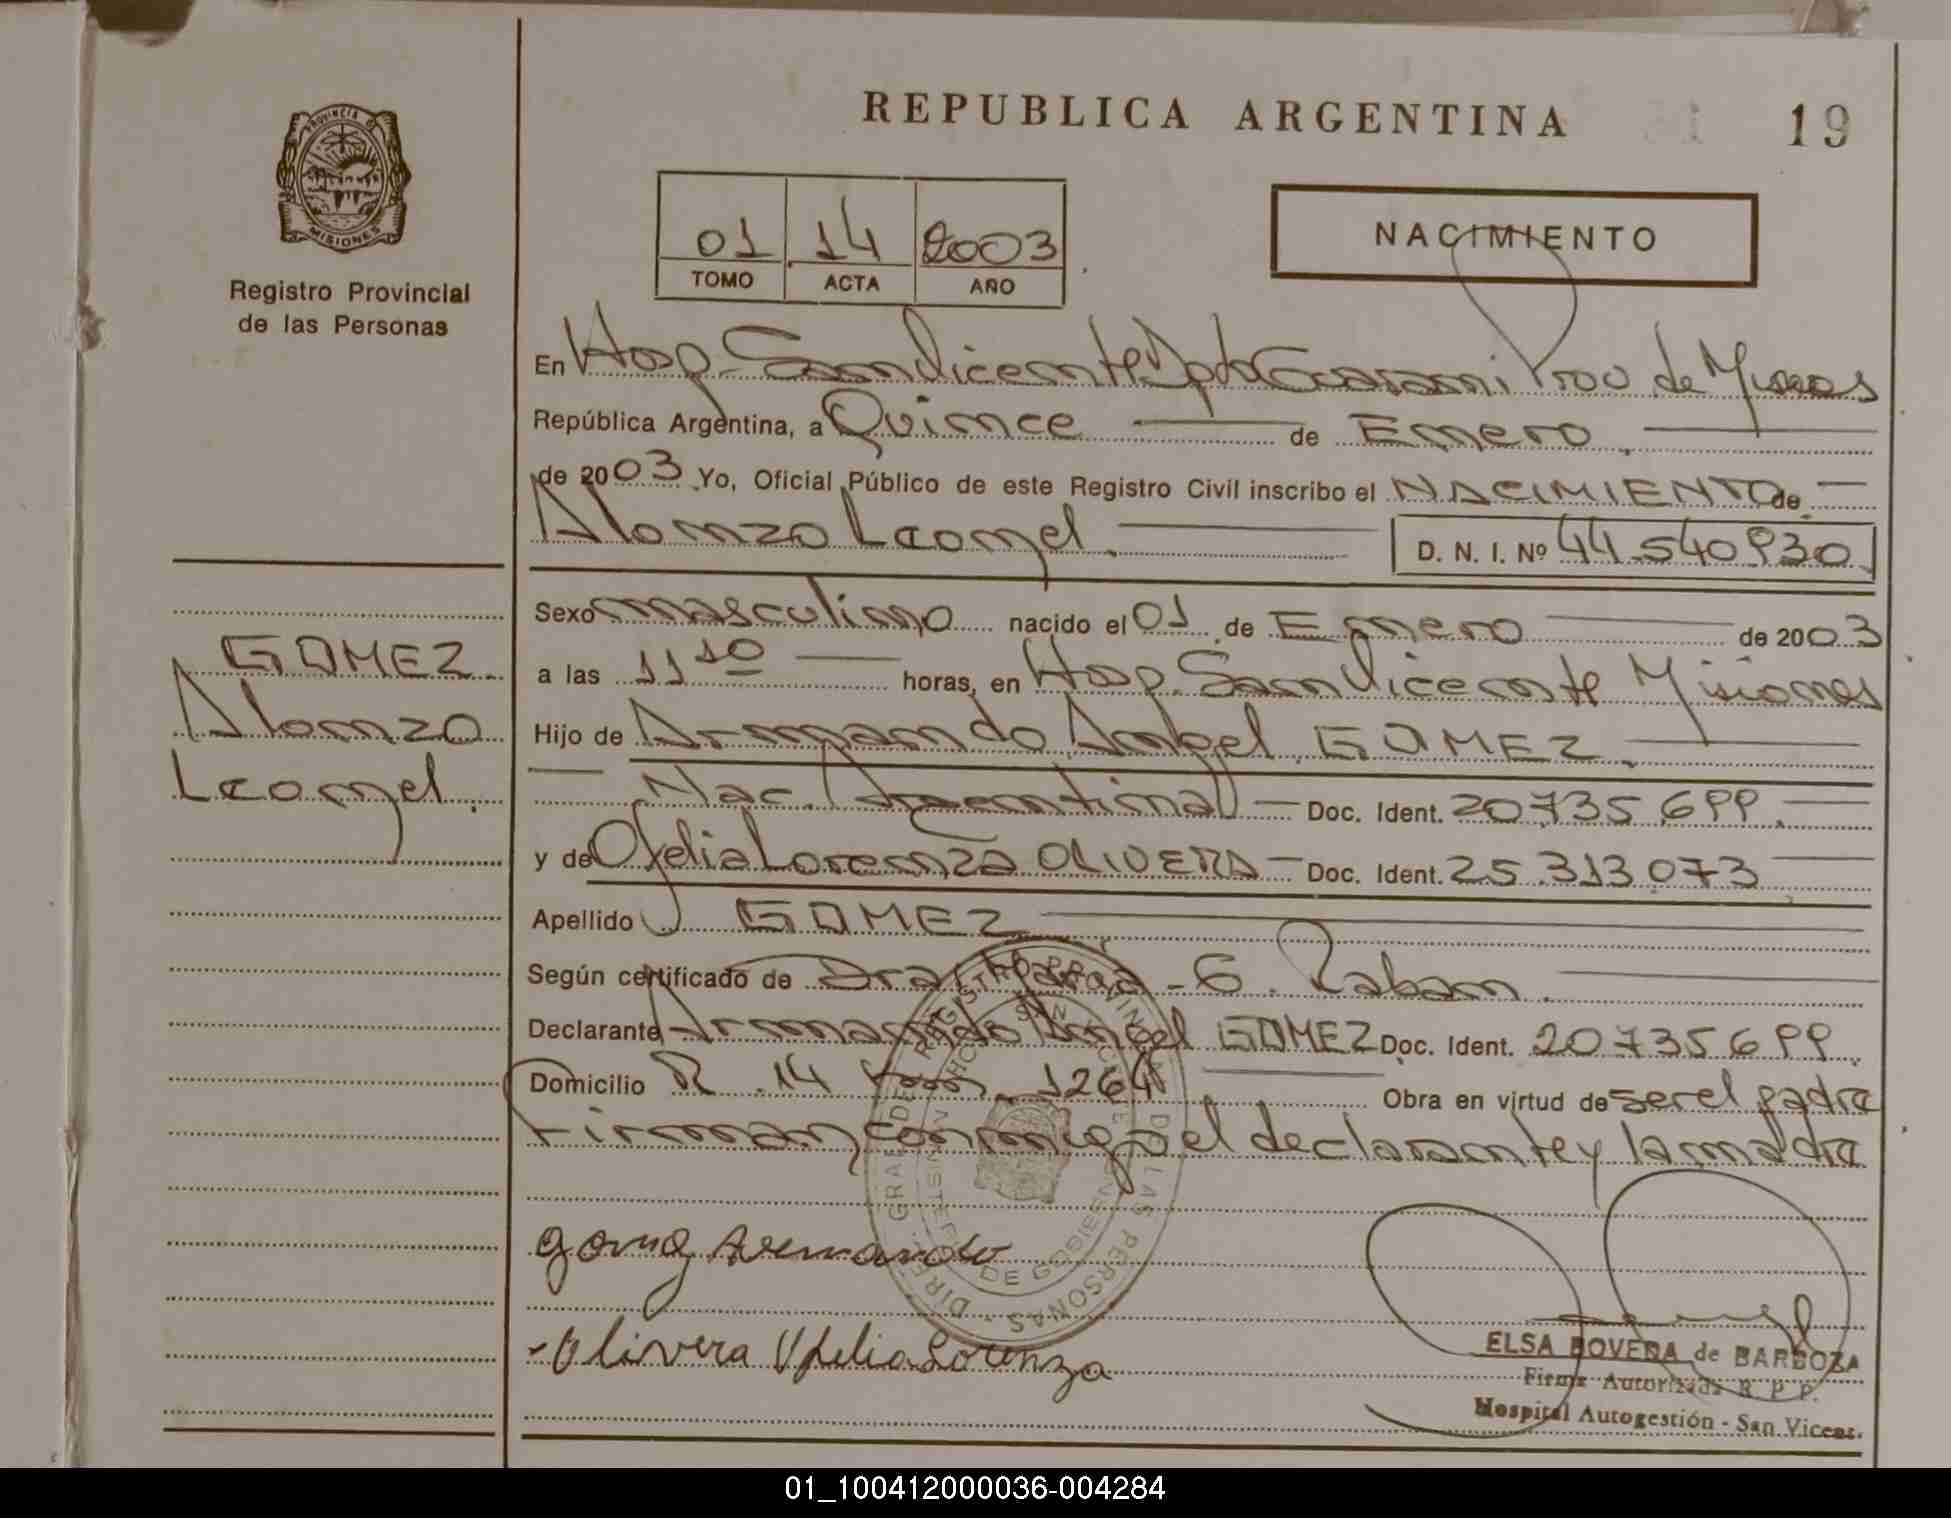 REPUBLICA ARGENTINA
19
PROVINCIA DE
MISIONES
Registro Provincial
de las Personas
01 14 2003
TOMO ACTA AÑO
NACIMIENTO
En Hosp. San Vicente Dpto Guarani Prov de Misiones
República Argentina, a Quince de Enero
de 2003 Yo, Oficial Público de este Registro Civil inscribo el NACIMIENTO de
Alonzo Leonel.
D. N. I. Nº 44.540930
GOMEZ
Alonzo
Leonel.
Sexo masculino nacido el 01 de Enero de 2003
a las 11 10 horas, en Hosp. San Vicente Misiones
Hijo de Armando Angel GOMEZ
Nac. Argentina Doc. Ident. 20735699
y de Ofelia Lorenza OLIVERA Doc. Ident. 25.313.073
Apellido GOMEZ
Según certificado de Dra. E.
Declarante Armando Angel GOMEZ Doc. Ident. 20735699
Domicilio R. 14 km 1264
Obra en virtud de ser el padre
Firman conmigo el declarante y la madre
Gomez Armando
Olivera Ofelia Lorenza
ELSA BOVEDA de BARBOZA
Firma Autorizada R. P. P.
Hospital Autogestión - San Vicent.
01_100412000036-004284